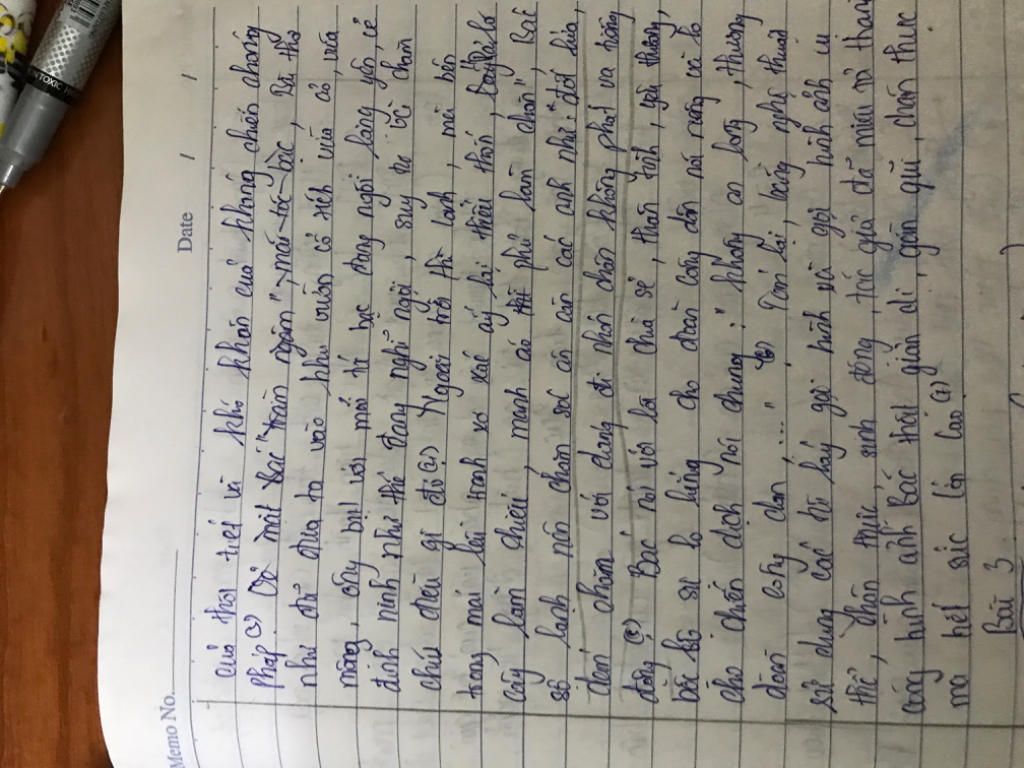 INTOXIC
Memo No.
Date / /
của thời tiết và khó khăn của kháng chiến chống
Pháp (3) Ở mặt Bác "trán ngâm", mái tóc bạc, Bài thơ
như đã đưa ta vào khu vườn cổ tích vừa cổ, vừa
mộng, ông bụt với mái tóc bạc đang ngồi lặng yên, cẻ
đinh ninh như thế đang nghĩ ngợi, suy tư về chân
chứ điều gì đó (1.) Ngoài trời thì lạnh, mà bên
trong mái lều tranh xơ xác ấy lại thấu thấu,
cây làm chiếc manh áo phủ làm chăn", Bác
sợ lạnh nên chăm sóc ân cần các anh như: "đốt lửa,
dém chăn với dáng đi nhón chân không phát ra tiếng
động (c) Bác nói với là chia sẻ, thân tình, yêu thương,
đó là sự lo lắng cho đoàn công dân nói riêng và lo
cho chiến dịch nói chung: " không an lòng, thương
đoàn công dân,... " Tóm lại, bằng nghệ thuật
sử dụng các từ láy gợi hình và gợi hình ảnh cụ
thể, chân thực sinh động, tác giả đã miêu tả thành
công hình ảnh Bác thật giản dị, gần gũi, chân thực
mà hết sức lớn lao (1)
Bài 3